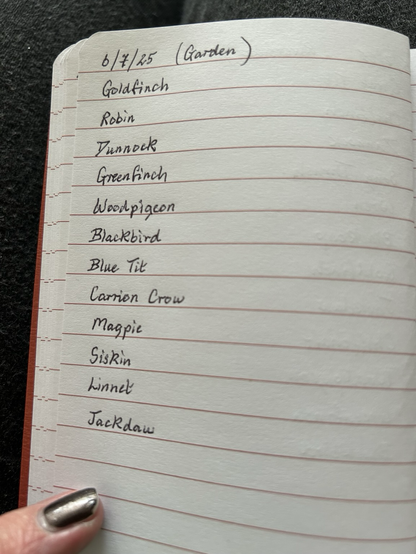 6/7/25 (Garden)
Goldfinch
Robin
Dunnock
Greenfinch
Woodpigeon
Blackbird
Blue Tit
Carrion Crow
Magpie
Siskin
Linnet
Jackdaw